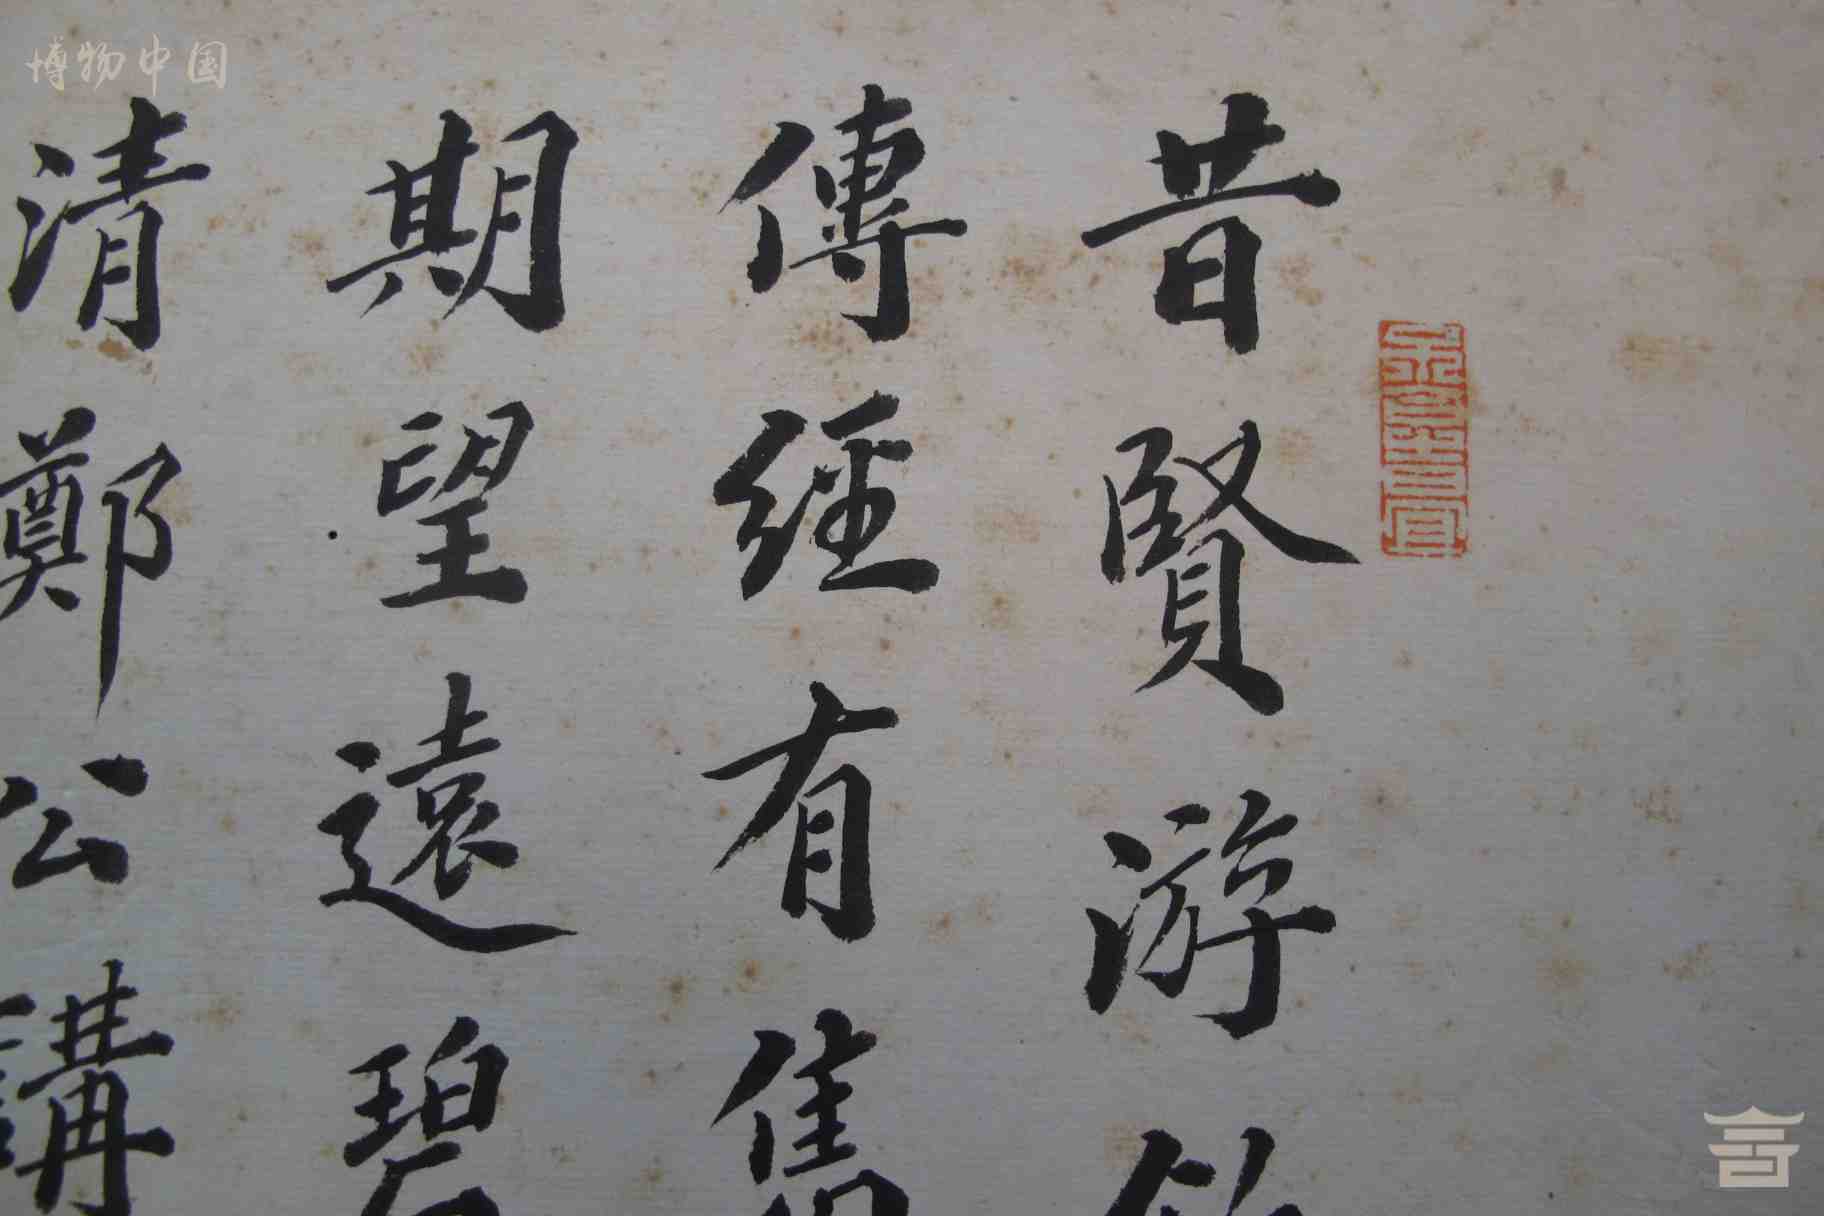 博物中国
昔賢游
傳經有雋
期望遠碧
清鄭公講